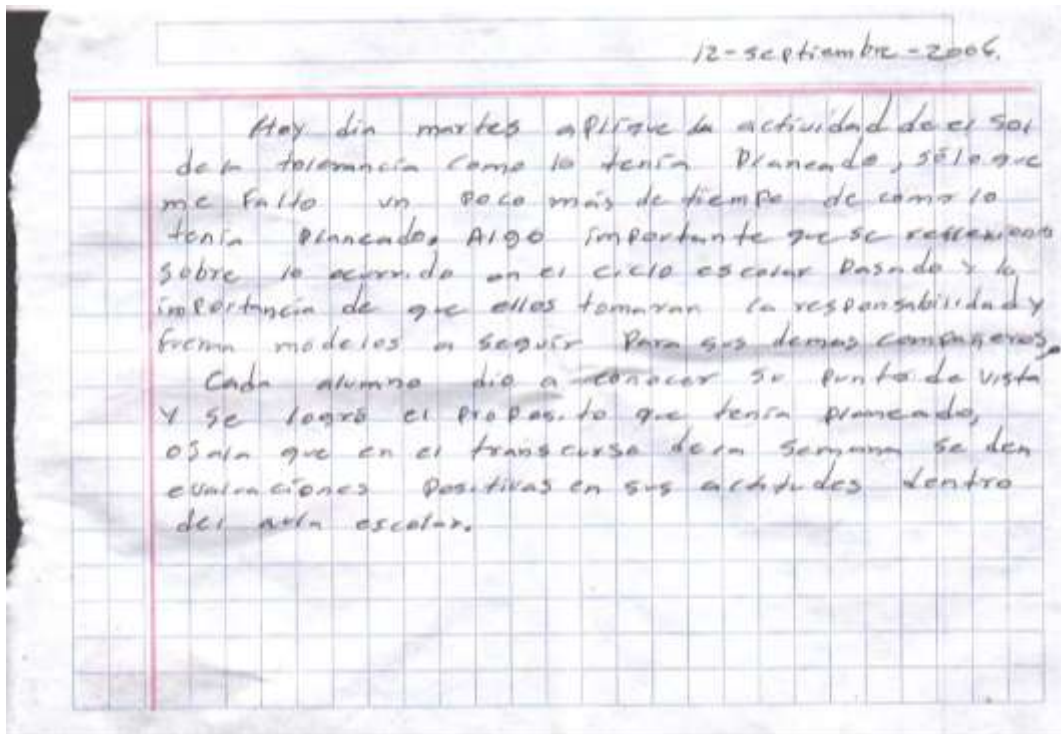 12-septiembre-2006.
Hoy dia martes aplique la actividad de el sol
de la tolerancia como lo tenía planeado, sólo que
me falto un poco más de tiempo de como lo
tenía planeado. Algo importante que se reflexiono
sobre lo ocurrido en el ciclo escolar pasado y la
importancia de que ellos tomaran la responsabilidad y
modelos a seguir para sus demas compañeros.
Cada alumno dio a conocer su punto de vista
y se logró el proposito que tenía planeado,
ojala que en el transcurso de la semana se den
evaluaciones positivas en sus actitudes dentro
del aula escolar.